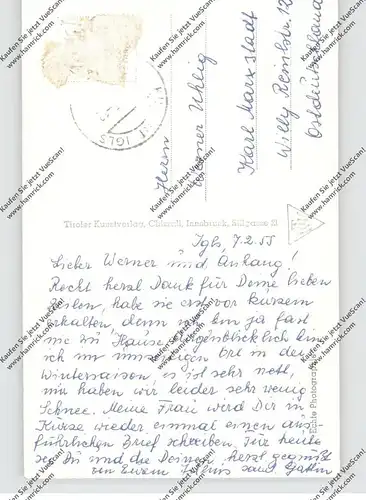 IGLS
Herrn
Werner Uhlig
Karl Marxstadt
Willy Reinlstr. 12
Ostdeutschland
Tiroler Kunstverlag, Chizzali, Innsbruck, Sillgasse 21
Echte Photographie
Igls, 7.2.55
Lieber Werner und Anhang!
Recht herzl. Dank für Deine lieben
Zeilen, habe sie erst vor kurzem
erhalten, denn bin ja fast
nie zu Hause. Augenblicklich bin
ich im Ort in der
Wintersaison, es ist sehr nett,
nur haben wir leider sehr wenig
Schnee. Meine Frau wird Dir in
Kürze wieder einmal einen aus-
führlichen Brief schreiben. Für heute
sei Du und die Deinen herzl. gegrüßt
von Eurem Julius samt Gattin
Kaufen Sie jetzt VueScan!
www.hamrick.com